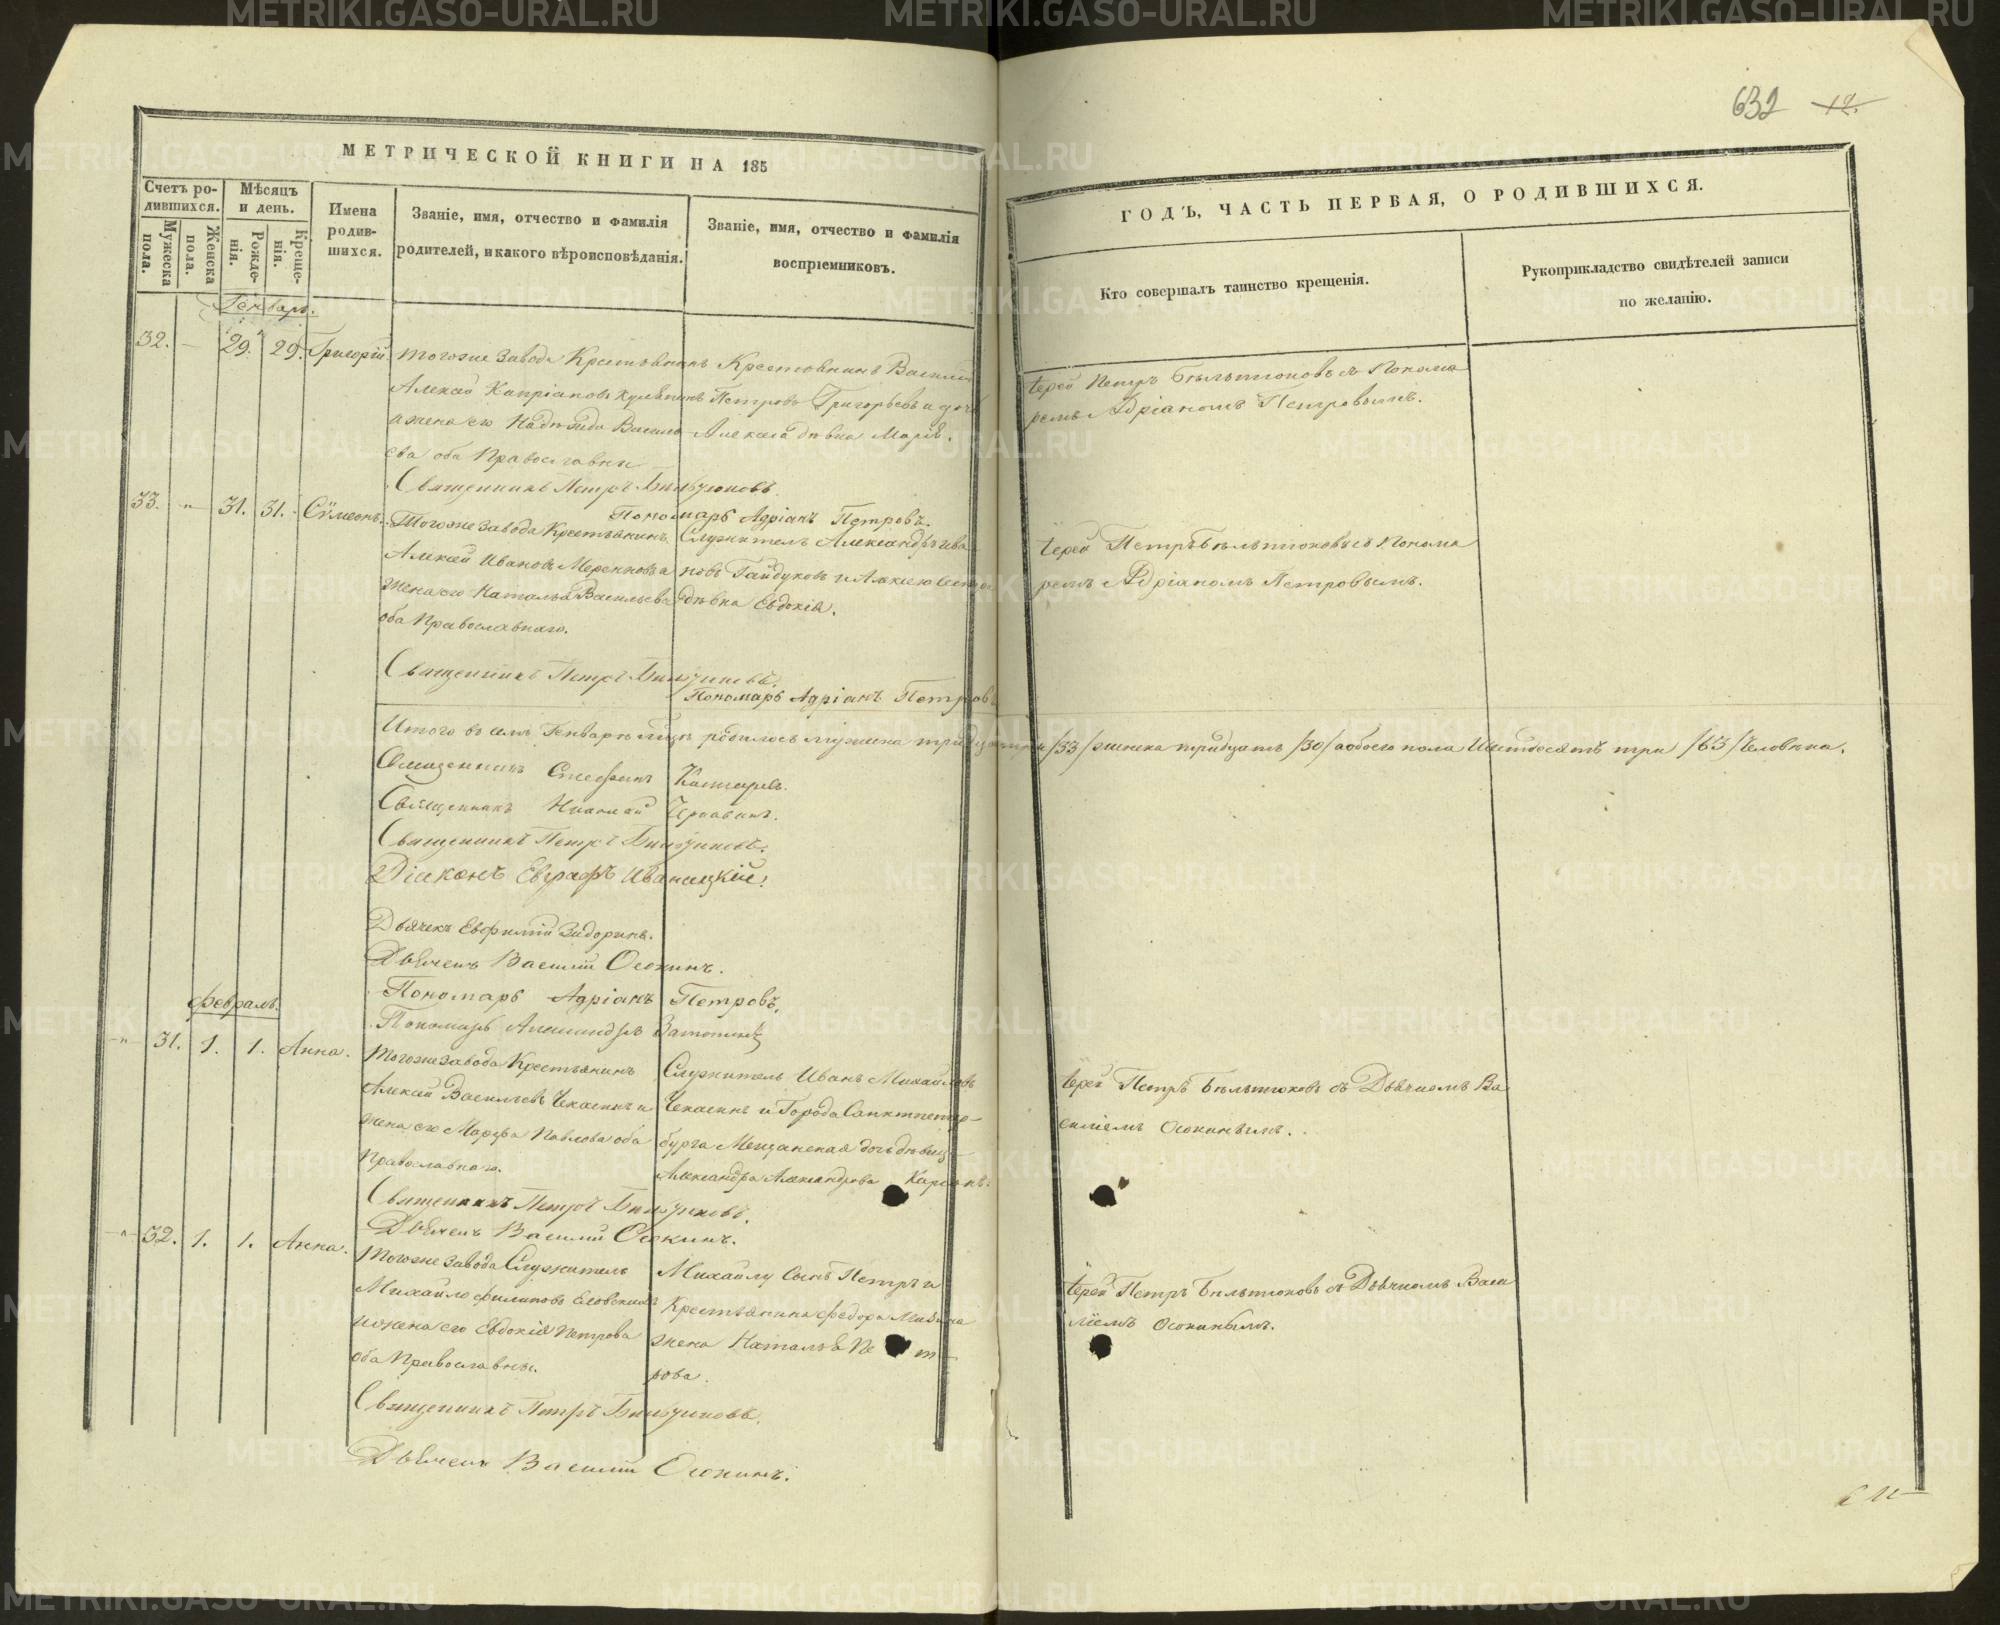 632 12.
МЕТРИЧЕСКОЙ КНИГИ НА 185
Счетъ родившихся.
Мужеска пола.
Женска пола.
Мѣсяцъ и день.
Рожденія.
Крещенія.
Имена родившихся.
Званіе, имя, отчество и фамилія родителей, и какого вѣроисповѣданія.
Званіе, имя, отчество и фамилія воспріемниковъ.
ГОДЪ, ЧАСТЬ ПЕРВАЯ, О РОДИВШИХСЯ.
Кто совершалъ таинство крещенія.
Рукоприкладство свидѣтелей записи по желанію.
Генварь.
32. — 29. 29. Григорій.
Тогоже завода Крестьянинъ
Алексѣй Кипріановъ
а жена его Надѣжда Василь-
ева оба Православны
Крестьянинъ Василій
Петровъ Григорьевъ и дочь
Алексѣя дѣвка Марія.
Іерей Петръ Бѣльтюковъ съ Понома
ремъ Адріаномъ Петровымъ.
Священникъ Петръ Бѣльтюковъ.
Пономарь Адріанъ Петровъ.
33. „ 31. 31. Сѵмеонъ.
Тогоже завода Крестьянинъ
Алексѣй Ивановъ а
жена его Наталья Васильева
оба Православнаго.
Служитель Александръ Ива
новъ Гайдуковъ и
дѣвка Евдокія.
Іерей Петръ Бѣльтюковъ съ Понома
ремъ Адріаномъ Петровымъ.
Священникъ Петръ Бѣльтюковъ.
Пономарь Адріанъ Петровъ
Итого въ семъ Генварѣ мцѣ родилось мужеска тридцать три /33/ женска тридцать /30/ а обоего пола Шестдесятъ три /63/ Человѣка.
Священникъ Стефанъ
Священникъ Николай
Священникъ Петръ Бѣльтюковъ.
Діаконъ Евграфъ Иваницкій.
Дьячекъ Евфимій Зидоринъ.
Дьячекъ Василій Осокинъ.
Пономарь Адріанъ Петровъ.
Пономарь Александръ
Февраль.
„ 31. 1. 1. Анна.
Тогоже завода Крестьянинъ
Алексѣй Васильевъ Чекасинъ и
жена его Марфа Павлова оба
Православнаго.
Служитель Иванъ Михайловъ
Чекасинъ и Города Санктпетер-
бурга Мещанская дочь дѣвица
Александра Александрова
Іерей Петръ Бѣльтюковъ съ Дьячкомъ Ва
силіемъ Осокинымъ.
Священникъ Петръ Бѣльтюковъ.
Дьячекъ Василій Осокинъ.
„ 32. 1. 1. Анна.
Тогоже завода Служитель
Михайло Филиповъ
и жена его Евдокія Петрова
оба Православны.
Михайлу Сынъ Петръ и
Крестьянина Федора
жена Наталья Пет-
рова.
Іерей Петръ Бѣльтюковъ съ Дьячкомъ Васи
ліемъ Осокинымъ.
Священникъ Петръ Бѣльтюковъ.
Дьячекъ Василій Осокинъ.
METRIKI.GASO-URAL.RU